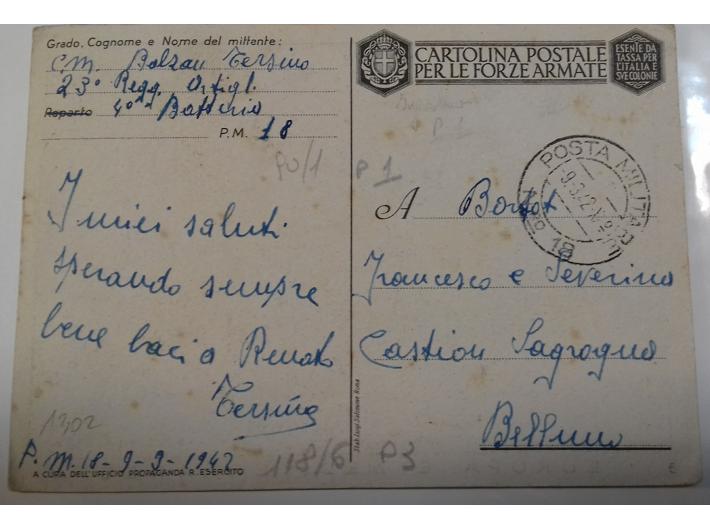 Grado, Cognome e Nome del mittente:
C.M. Balzan Tersino
23° Regg. Artigl.
Reparto 4° Batteria
P.M. 18
PU/1
I miei saluti
sperando sempre
bene baci a Renato
Tersino
1302
P.M. 18 - 9-3-1942
A CURA DELL'UFFICIO PROPAGANDA R. ESERCITO
118/6 P3
CARTOLINA POSTALE
PER LE FORZE ARMATE
ESENTE DA
TASSA PER
L'ITALIA E
SUE COLONIE
P 1
POSTA MILITARE
9.3.42.X
18
A Bortot
Francesco e Severino
Castion Sagrogna
Belluno
Stab. Luigi Salomone Roma